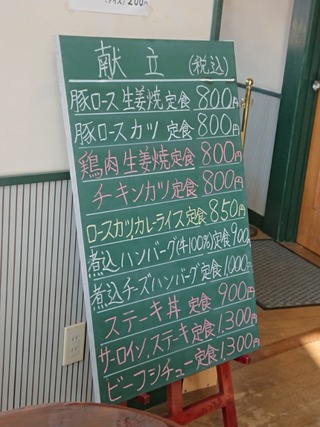 (サイズ) 200円
献立 (税込)
豚ロース生姜焼定食 800円
豚ロースカツ定食 800円
鶏肉生姜焼定食 800円
チキンカツ定食 800円
ロースカツカレーライス定食 850円
煮込ハンバーグ(牛100%)定食 900円
煮込チーズハンバーグ定食 1,000円
ステーキ丼定食 900円
サーロイン,ステーキ定食 1,300円
ビーフシチュー定食 1,300円